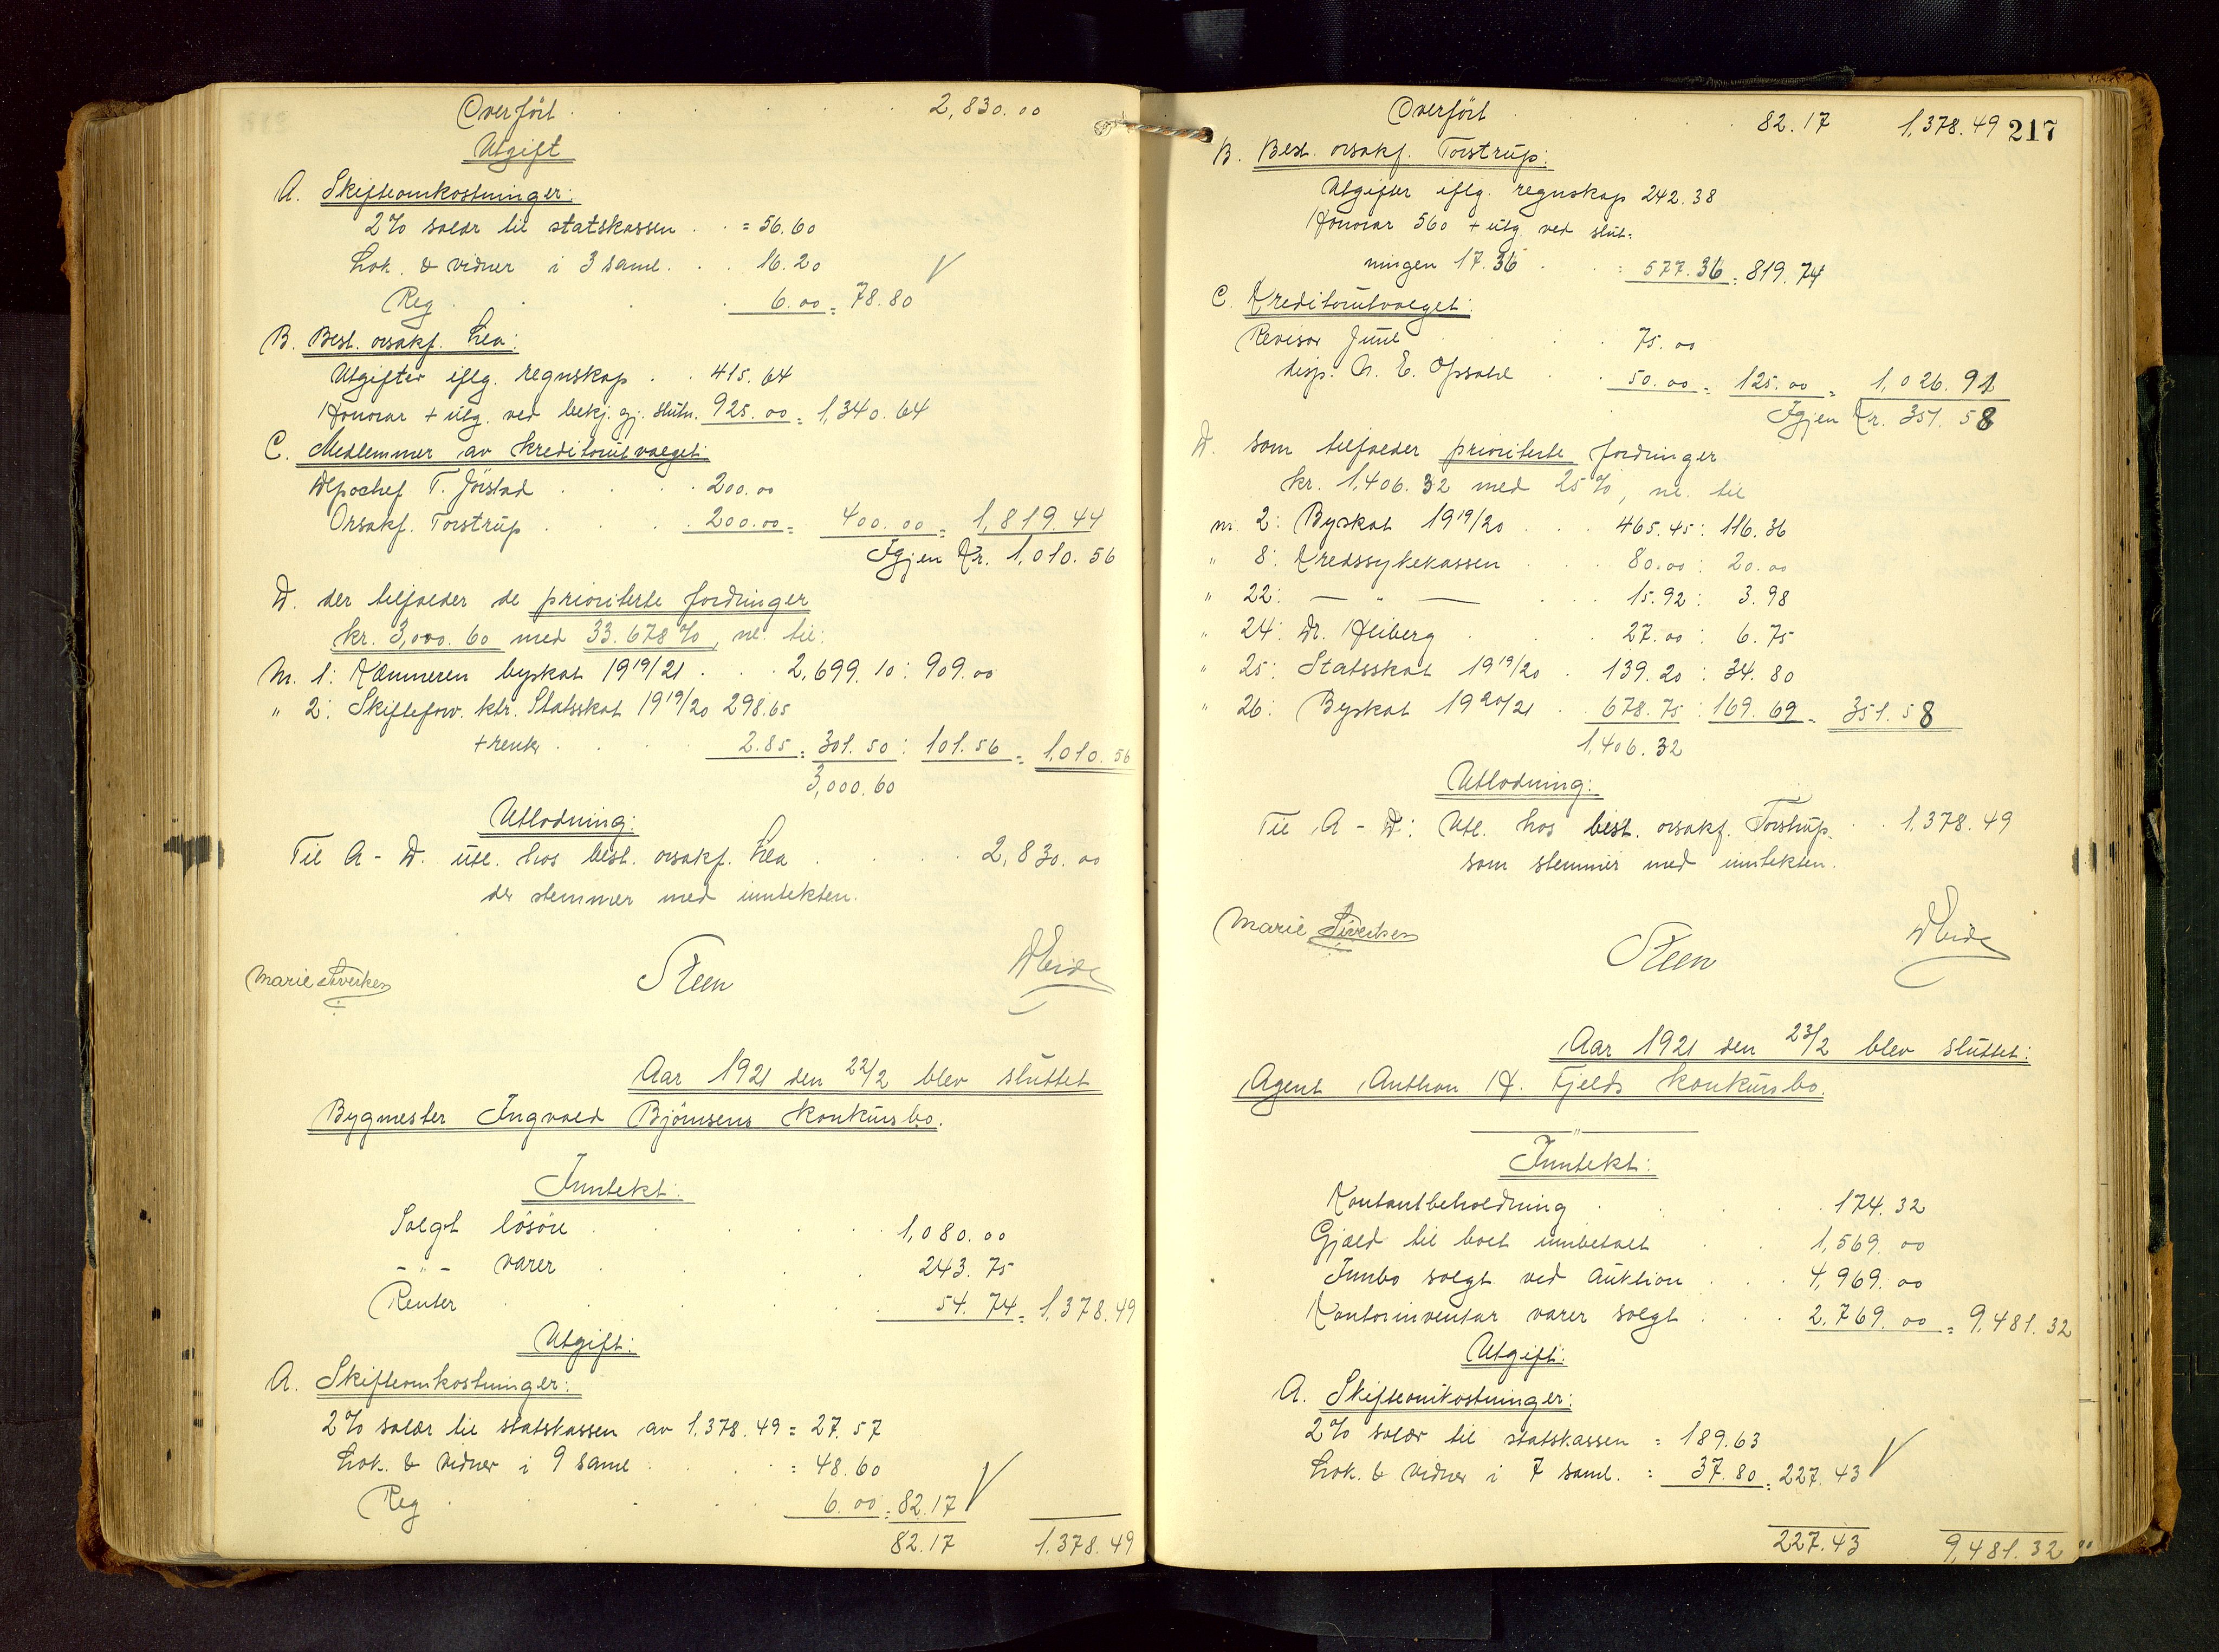 Overført . . . . . 2,830.00
Utgift
A. Skifteomkostninger:
2% salær til statskassen . . = 56.60
Lok. & vidner i 3 saml. . . 16.20
Reg . . . . 6.00 = 78.80
B. Best. orsakf. Lea:
Utgifter iflg. regnskap . . 415.64
Honorar + utg. ved bekj. gj. slutn. 925.00 = 1,340.64
C. Medlemmer av kreditorutvalget:
Depochef T. Jörstad . . . . 200.00
Orsakf. Torstrup . . . . 200.00 = 400.00 = 1,819.44
Igjen Kr. 1,010.56
D. der tilfalder de prioriterte fordringer
kr. 3,000.60 med 33.678%, nl. til:
Nr. 1: Kæmneren byskat 1919/21 . . . 2,699.10 : 909.00
" 2: Skifteforv. ktr. Statsskat 1919/20 298.65
+ renter . . . . 2.85 = 301.50 : 101.56 = 1,010.56
3,000.60
Utlodning:
Til A - D. utl. hos best. orsakf. Lea . . . . 2,830.00
der stemmer med inntekten.
Marie Siverksen Steen
Aar 1921 den 22/2 blev sluttet
Bygmester Ingvald Björnsens konkursbo.
Inntekt:
Solgt lösöre . . . . 1,080.00
- " - varer . . . 243.75
Renter . . . . . 54.74 = 1,378.49
Utgift:
A. Skifteomkostninger:
2% salær til statskassen av 1,378.49 = 27.57
Lok. & vidner i 9 saml . . . . = 48.60
Reg . . . . 6.00 = 82.17
82.17 1,378.49
217
Overfört . . . . . 82.17 1,378.49
B. Best. orsakf. Torstrup:
Utgifter iflg. regnskap 242.38
Honorar 560 + utg. ved slut-
ningen 17.36 . . = 577.36 = 819.74
C. Kreditorutvalget:
Revisor Juul . . . . 75.00
disp. N. E. Opsahl . . . 50.00 = 125.00 = 1,026.91
Igjen Kr. 351.58
D. som tilfalder prioriterte fordringer
kr. 1,406.32 med 25%, nl. til
nr. 2: Byskat 1919/20 . . . 465.45 : 116.36
" 8: Kredssykekassen . . . 80.00 : 20.00
" 22: — " — . . . 15.92 : 3.98
" 24: Dr. Heiberg . . . 27.00 : 6.75
" 25: Statsskat 1919/20 . 139.20 : 34.80
" 26: Byskat 1920/21 . . 678.75 : 169.69 = 351.58
1,406.32
Utlodning:
Til A - D: Utl. hos best. orsakf. Torstrup . . 1,378.49
som stemmer med inntekten.
Marie Siverksen Steen
Aar 1921 den 23/2 blev sluttet:
Agent Anthon H. Fjelds konkursbo.
Inntekt:
Kontantbeholdning . . . . 174.32
Gjæld til boet innbetalt . . 1,569.00
Innbo solgt ved auktion . . . 4,969.00
Kontorinventar varer solgt . . . 2,769.00 = 9,481.32
Utgift:
A. Skifteomkostninger:
2% salær til statskassen = 189.63
Lok. & vidner i 7 saml. = 37.80 = 227.43
227.43 9,481.32